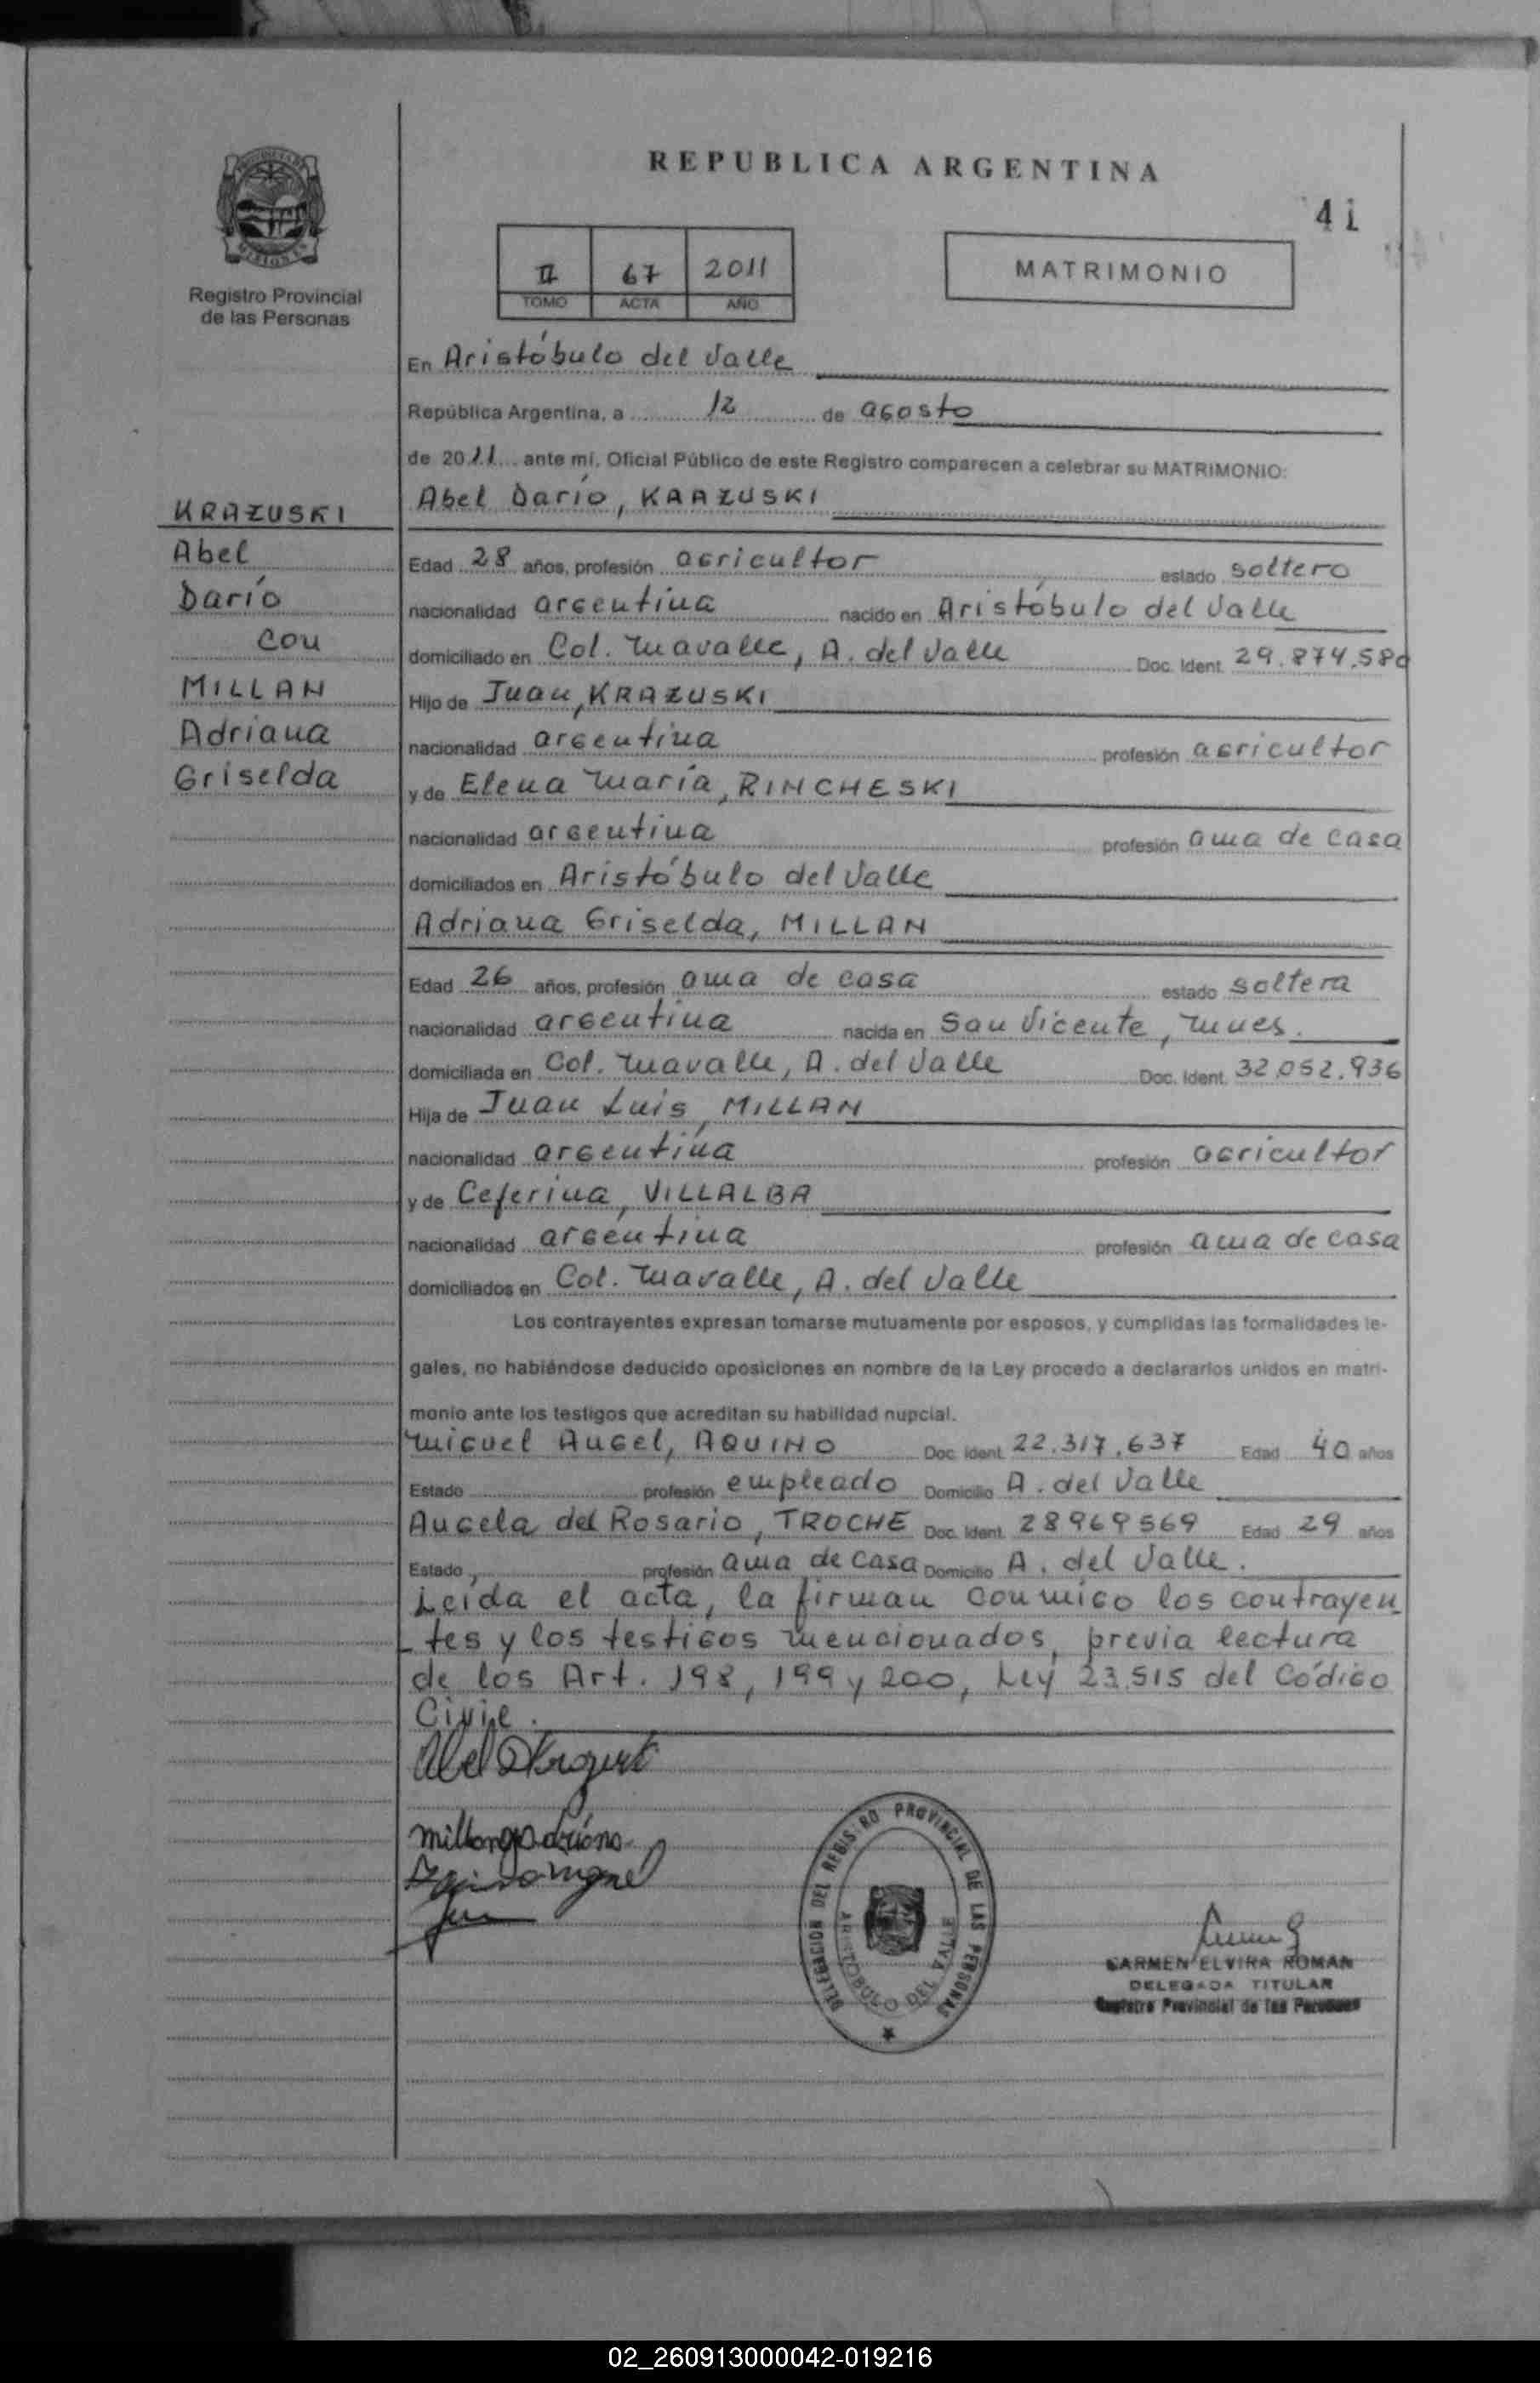 REPUBLICA ARGENTINA
41
PROVINCIA DE
MISIONES
Registro Provincial
de las Personas
II 67 2011
TOMO ACTA AÑO
MATRIMONIO
En Aristóbulo del Valle
República Argentina, a 12 de agosto
de 2011 ante mí, Oficial Público de este Registro comparecen a celebrar su MATRIMONIO:
KRAZUSKI
Abel
Darío
con
MILLAN
Adriana
Griselda
Abel Darío, KRAZUSKI
Edad 28 años, profesión agricultor estado soltero
nacionalidad argentina nacido en Aristóbulo del Valle
domiciliado en Col. Mavalle, A. del Valle Doc. Ident. 29.874.580
Hijo de Juan, KRAZUSKI
nacionalidad argentina profesión agricultor
y de Elena María, RINCHESKI
nacionalidad argentina profesión ama de casa
domiciliados en Aristóbulo del Valle
Adriana Griselda, MILLAN
Edad 26 años, profesión ama de casa estado soltera
nacionalidad argentina nacida en San Vicente, Mnes.
domiciliada en Col. Mavalle, A. del Valle Doc. Ident. 32.052.936
Hija de Juan Luis, MILLAN
nacionalidad argentina profesión agricultor
y de Ceferina, VILLALBA
nacionalidad argentina profesión ama de casa
domiciliados en Col. Mavalle, A. del Valle
Los contrayentes expresan tomarse mutuamente por esposos, y cumplidas las formalidades le-
gales, no habiéndose deducido oposiciones en nombre de la Ley procedo a declararlos unidos en matri-
monio ante los testigos que acreditan su habilidad nupcial.
Miguel Angel, AQUINO Doc. Ident. 22.317.637 Edad 40 años
Estado profesión empleado Domicilio A. del Valle
Angela del Rosario, TROCHE Doc. Ident. 28969569 Edad 29 años
Estado profesión ama de casa Domicilio A. del Valle.
Leída el acta, la firman conmigo los contrayen
tes y los testigos mencionados, previa lectura
de los Art. 198, 199 y 200, Ley 23.515 del Código
Civil.
Millan Adriana
DELEGACION DEL REGISTRO PROVINCIAL DE LAS PERSONAS
ARISTOBULO DEL VALLE
CARMEN ELVIRA ROMAN
DELEGADA TITULAR
Registro Provincial de las Personas
02_260913000042-019216